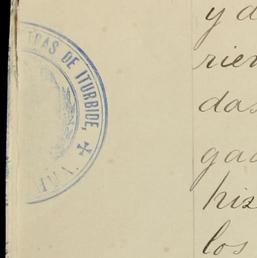 TRAS DE ITURBIDE,
y d
rien
das
gad
hiz
los